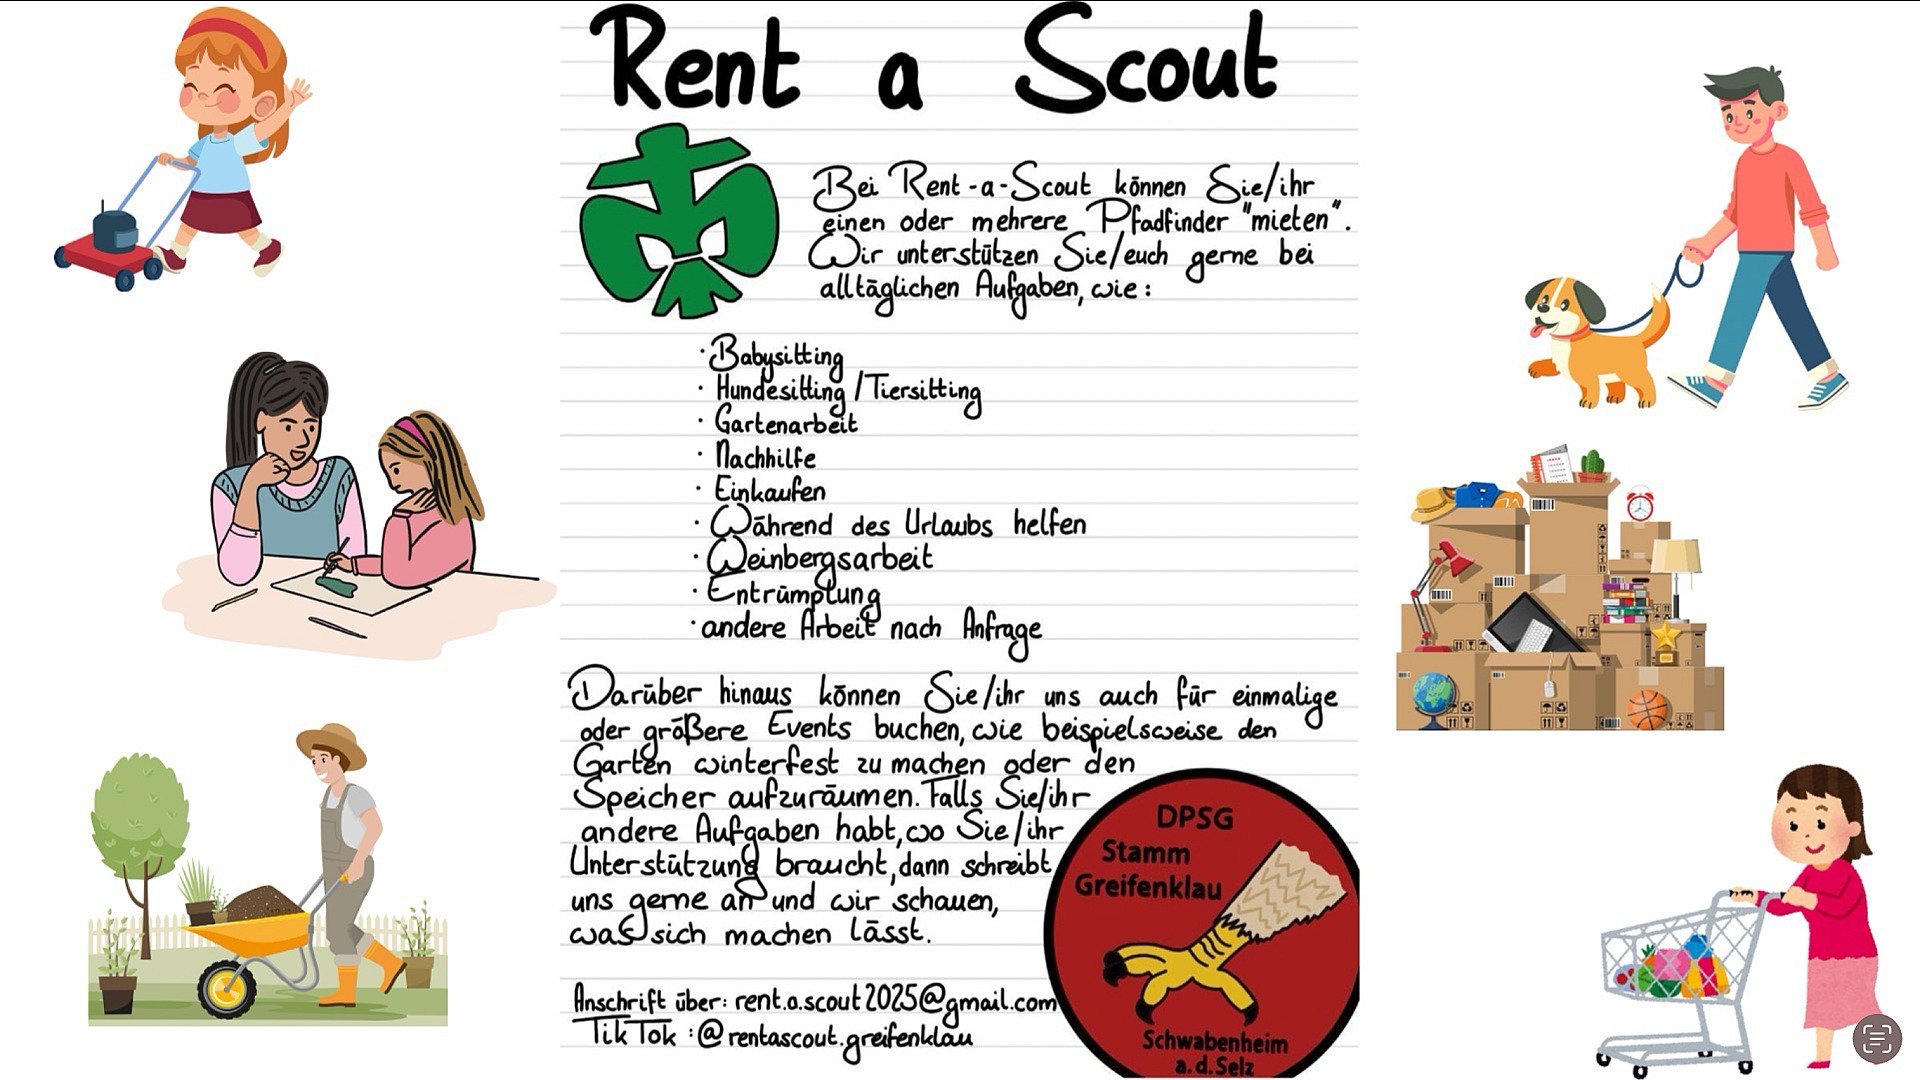 Rent a Scout
Bei Rent-a-Scout können Sie/ihr
einen oder mehrere Pfadfinder "mieten".
Wir unterstützen Sie/euch gerne bei
alltäglichen Aufgaben, wie:
· Babysitting
· Hundesitting/Tiersitting
· Gartenarbeit
· Nachhilfe
· Einkaufen
· Während des Urlaubs helfen
· Weinbergsarbeit
· Entrümplung
· andere Arbeit nach Anfrage
Darüber hinaus können Sie/ihr uns auch für einmalige
oder größere Events buchen, wie beispielsweise den
Garten winterfest zu machen oder den
Speicher aufzuräumen. Falls Sie/ihr
andere Aufgaben habt, wo Sie/ihr
Unterstützung braucht, dann schreibt
uns gerne an und wir schauen,
was sich machen lässt.
Anschrift über: rent.a.scout2025@gmail.com
TikTok: @rentascout.greifenklau
DPSG
Stamm
Greifenklau
Schwabenheim
a.d.Selz